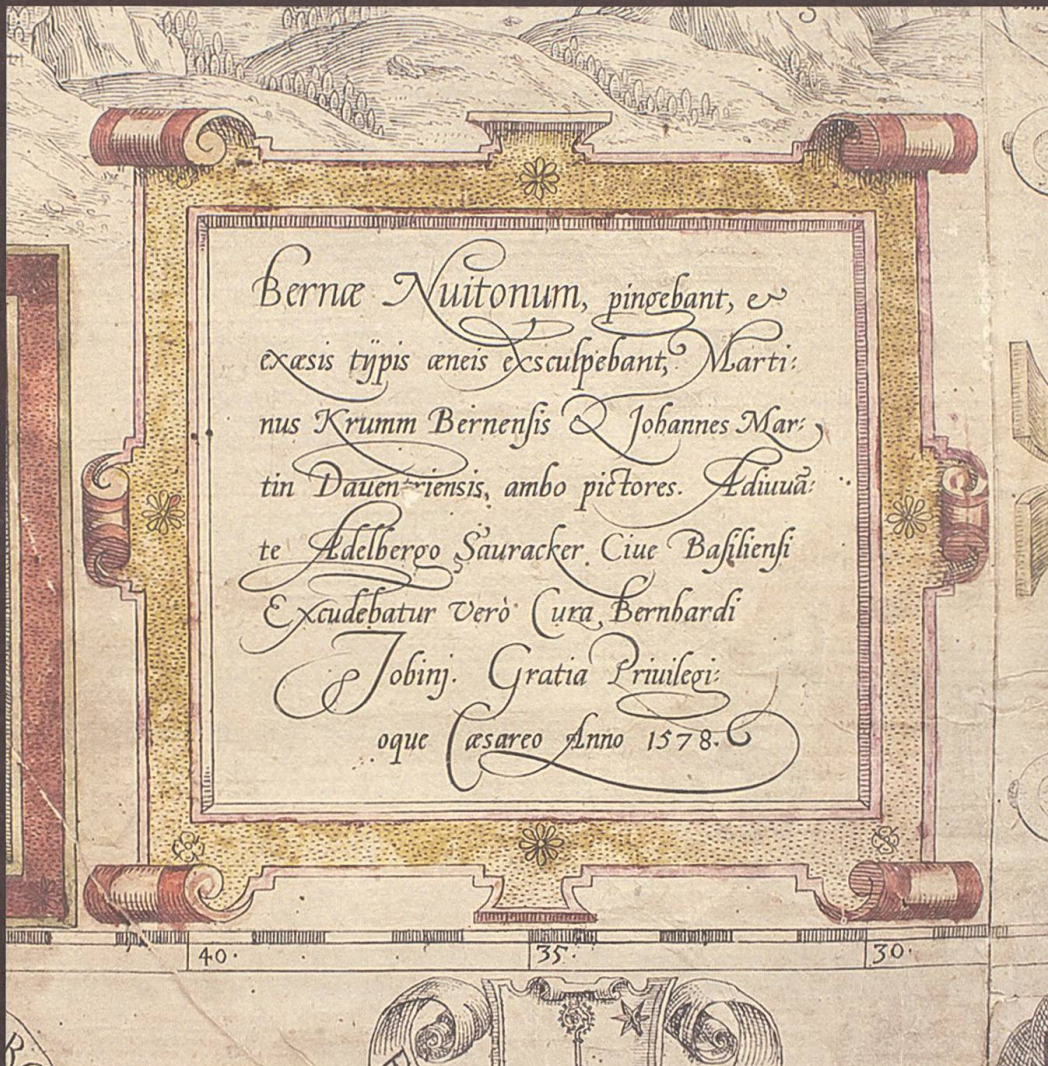 Bernæ Nuitonum, pingebant, &
exæsis tÿpis æneis exsculpebant, Marti:
nus Krumm Bernenſis & Johannes Mar:
tin Dauentriensis, ambo pictores. Adiuuã:
te Adelbergo Sauracker Ciue Baſilienſi
Excudebatur verò Cura Bernhardi
Jobinj. Gratia Priuilegi:
oque Cæsareo Anno 1578.
40. 35. 30.
R.